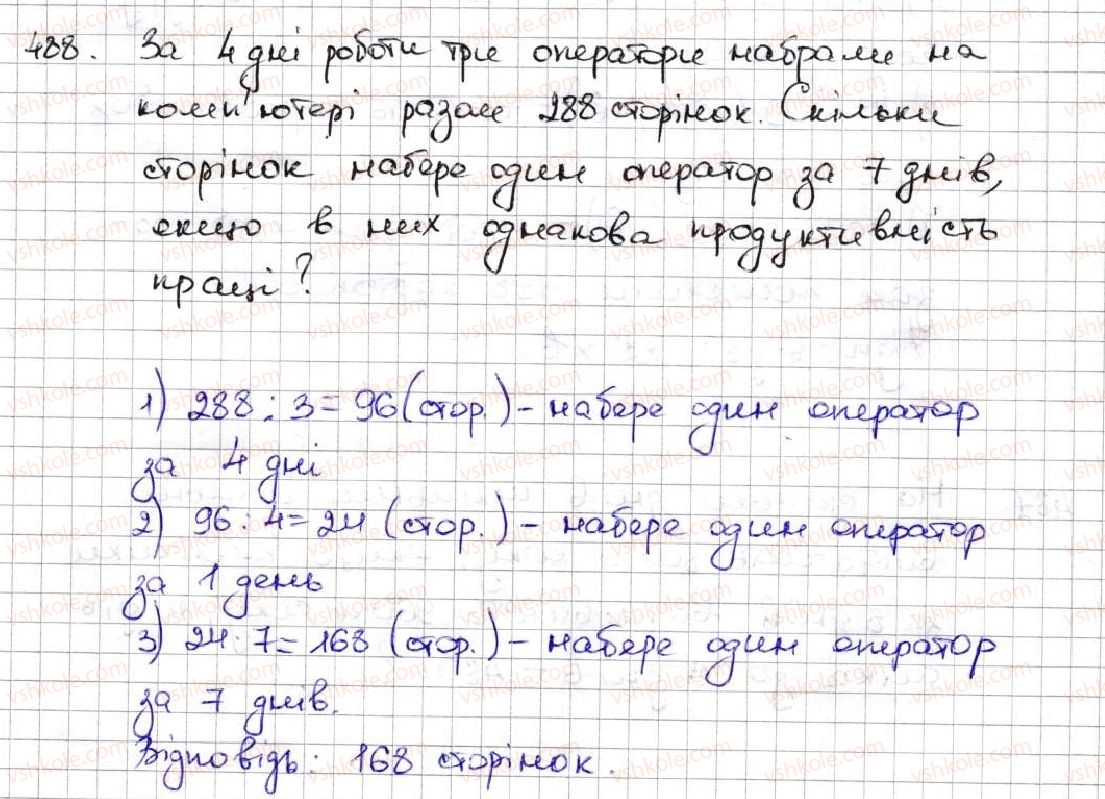 488. За 4 дні роботи три оператори набрали на
комп'ютері разом 288 сторінок. Скільки
сторінок набере один оператор за 7 днів,
якщо в них однакова продуктивність
праці?
1) 288 : 3 = 96 (стор.) - набере один оператор
за 4 дні
2) 96 : 4 = 24 (стор.) - набере один оператор
за 1 день
3) 24 · 7 = 168 (стор.) - набере один оператор
за 7 днів.
Відповідь: 168 сторінок.